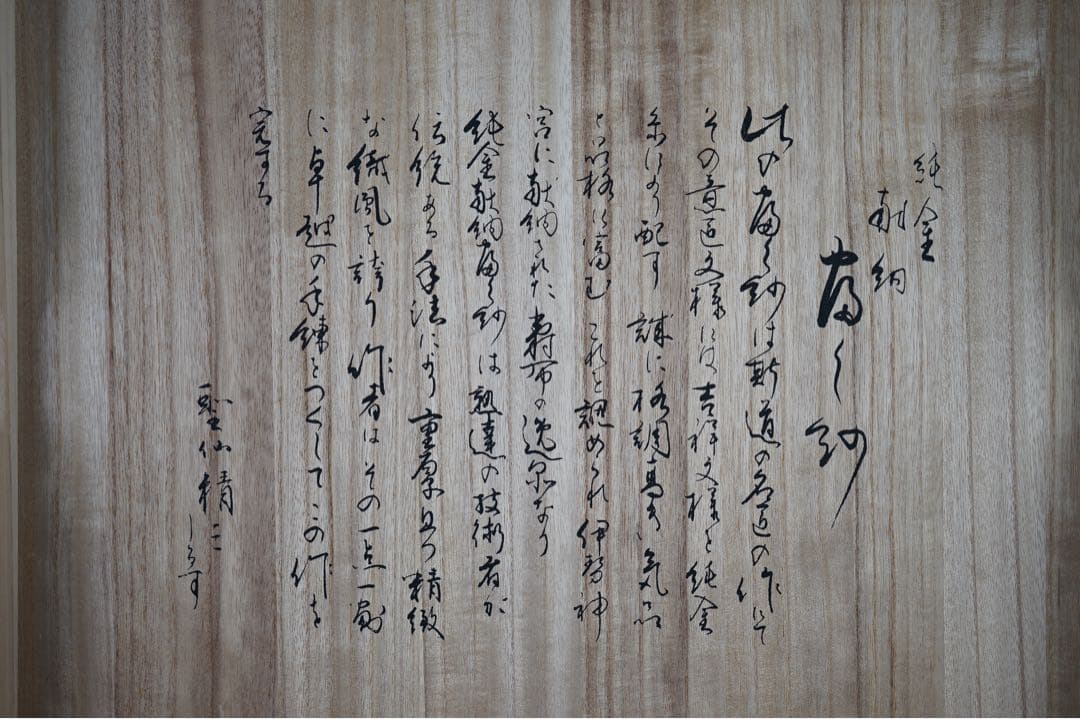 純金
献納
富久紗
此の富久紗は斯道の名匠の作にて
その意匠文様には吉祥文様を純金
糸により配す 誠に格調高い気品
と品格に富む これを認められ伊勢神
宮に献納された寿布の逸品なり
純金献納富久紗は熟達の技術者が
伝統ある手法により重厚且つ精緻
な織風を誇り 作者はその一点一劃
に卓越の手錬をつくしてこの作を
完する
聖仙精二
しるす